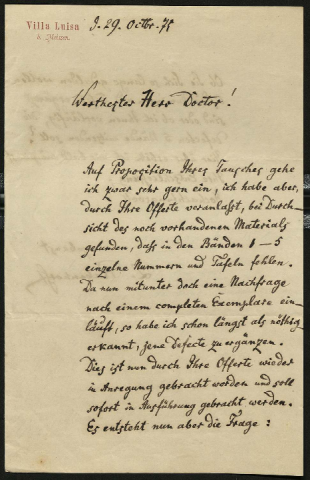 Villa Luisa
b. Meissen.
d. 29. Octbr. 75
Werthester Herr Doctor!
Auf Proposition Ihres Tausches gehe
ich zwar sehr gern ein, ich habe aber,
durch Ihre Offerte veranlasst, bei Durch-
sicht des noch vorhandenen Materials
gefunden, dass in den Bänden 1–5
einzelne Nummern und Tafeln fehlen.
Da nun mitunter doch eine Nachfrage
nach einem completen Exemplare ein-
läuft, so habe ich schon längst als nöthig
erkannt, jene Defecte zu ergänzen.
Dies ist nun durch Ihre Offerte wieder
in Anregung gebracht worden und soll
sofort in Ausführung gebracht werden.
Es entsteht nun aber die Frage: